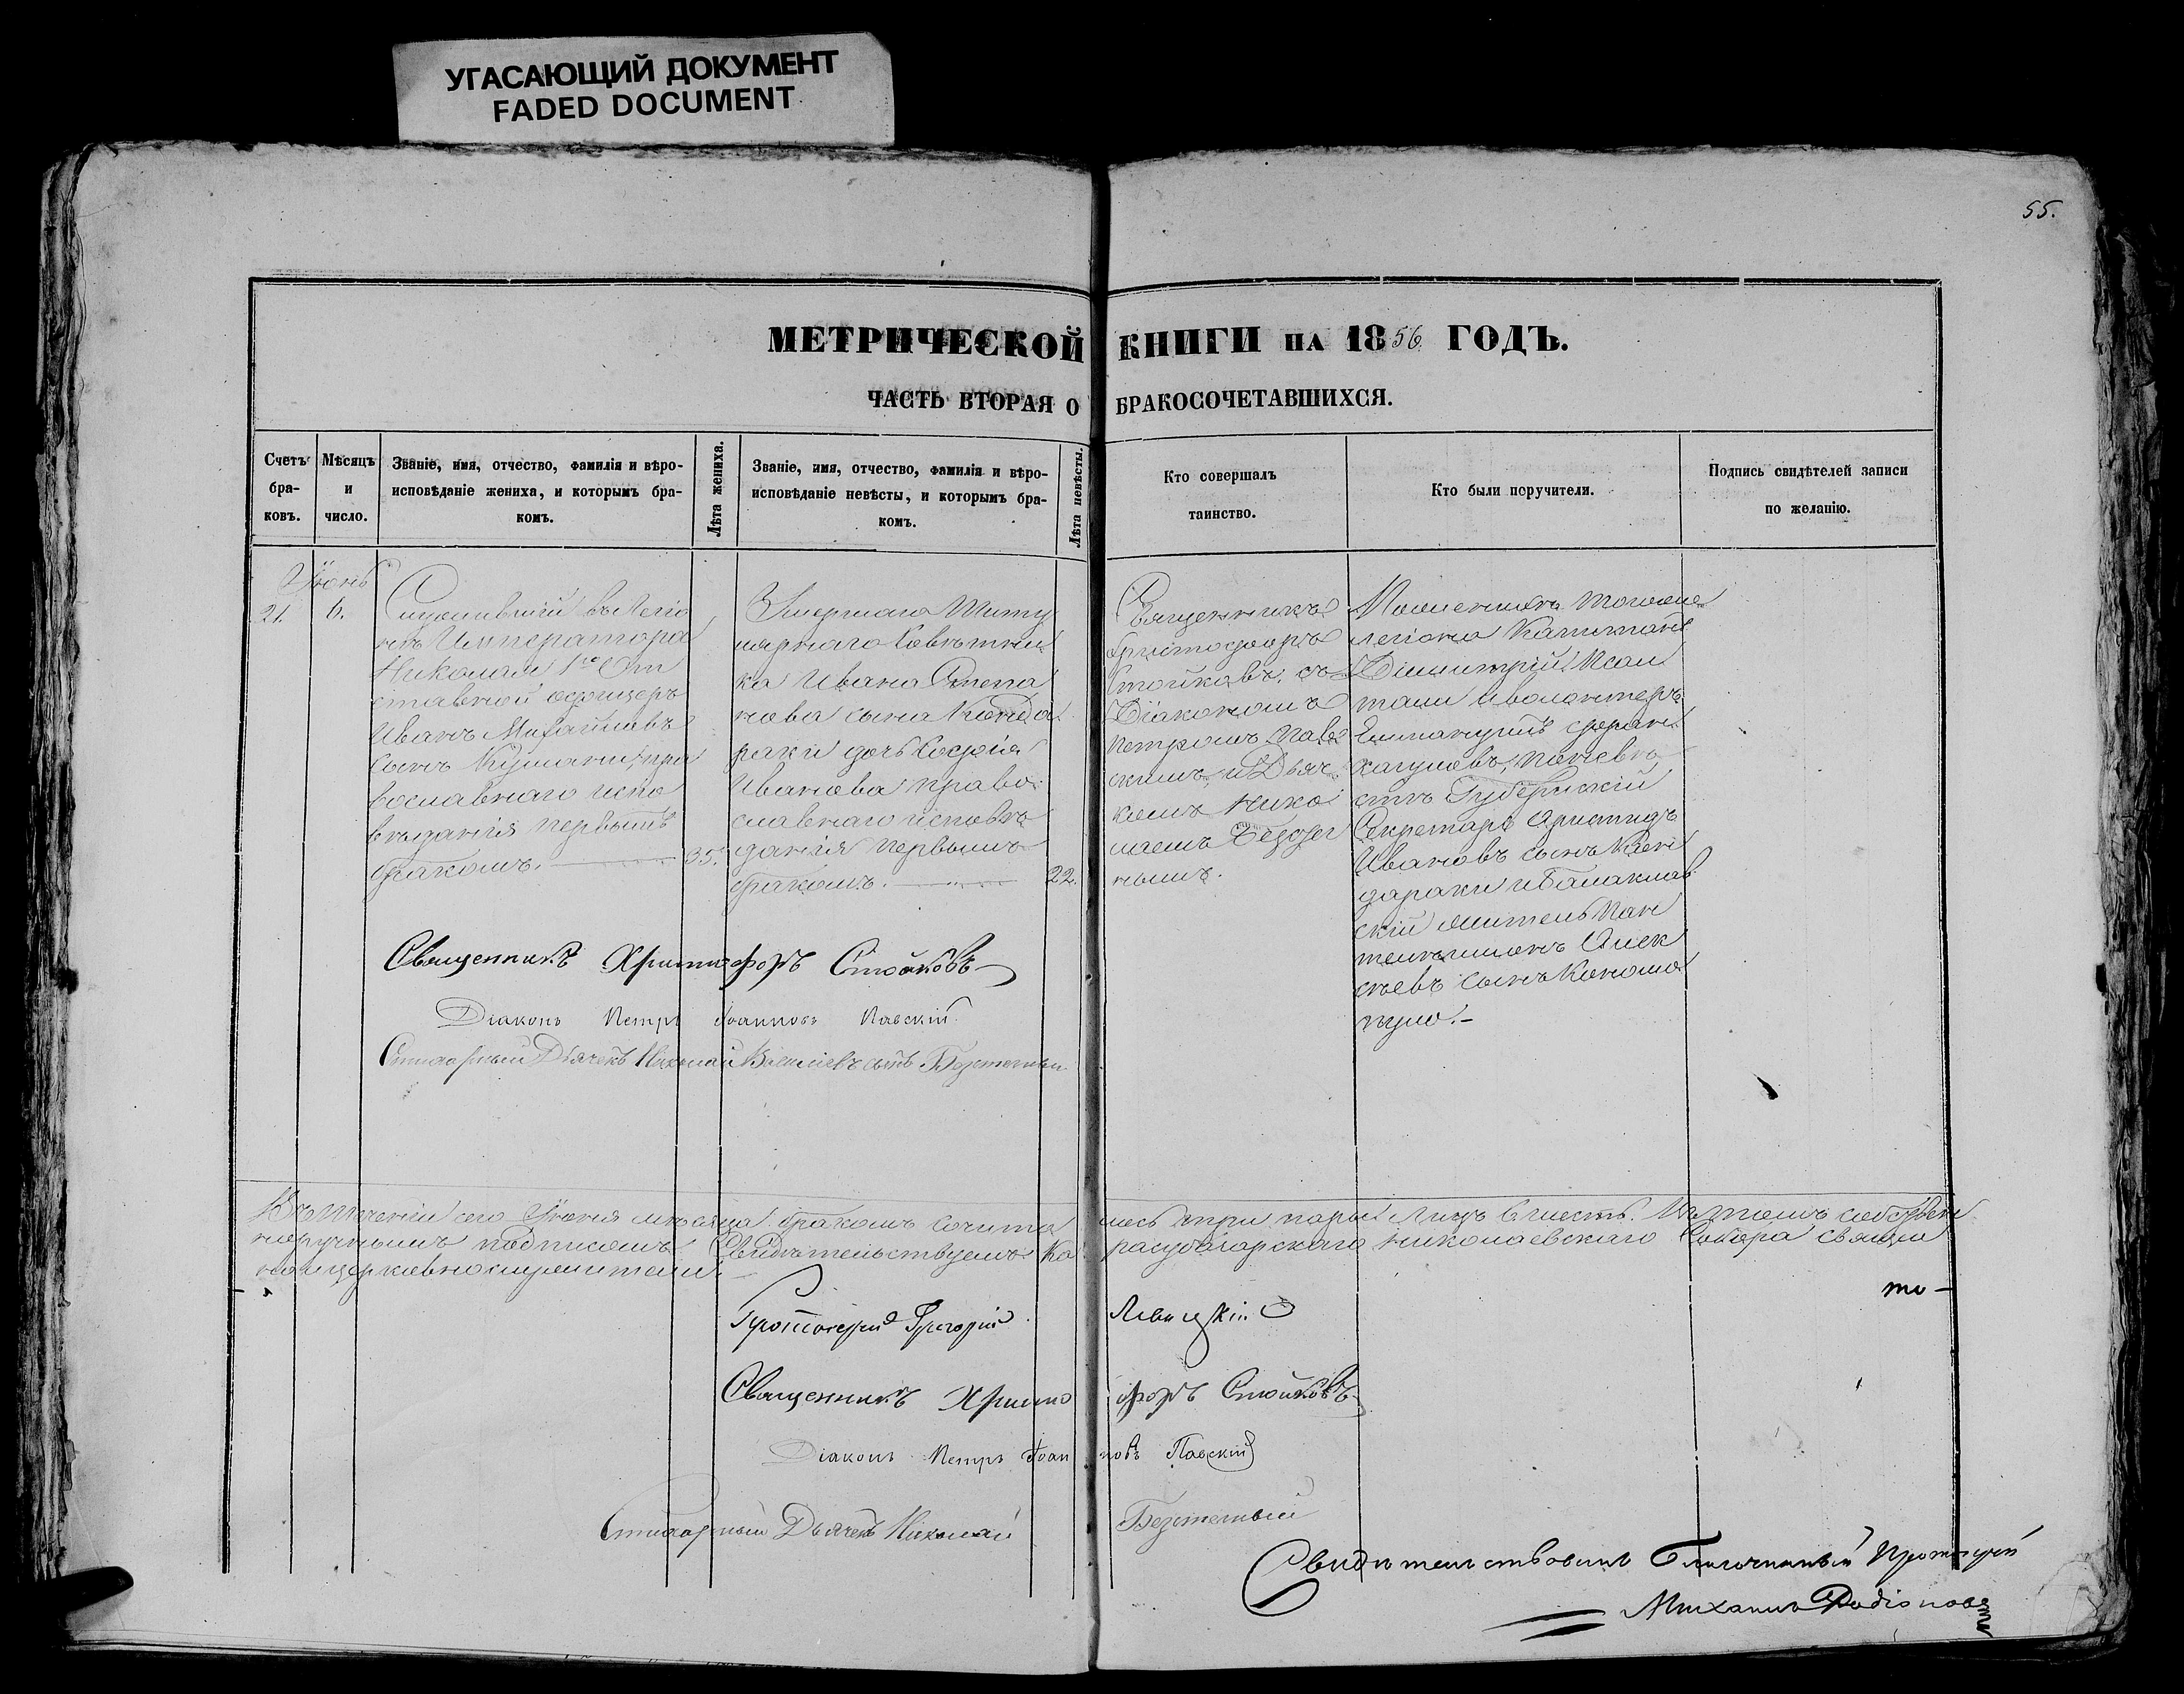 УГАСАЮЩИЙ ДОКУМЕНТ
FADED DOCUMENT
55.
МЕТРИЧЕСКОЙ КНИГИ НА 1856 ГОДЪ.
ЧАСТЬ ВТОРАЯ О БРАКОСОЧЕТАВШИХСЯ.
Счетъ бра-
ковъ.
Мѣсяцъ
и
число.
Званіе, имя, отчество, фамилія и вѣро-
исповѣданіе жениха, и которымъ бра-
комъ.
Лѣта жениха.
Званіе, имя, отчество, фамилія и вѣро-
исповѣданіе невѣсты, и которымъ бра-
комъ.
Лѣта невѣсты.
Кто совершалъ
таинство.
Кто были поручители.
Подпись свидѣтелей записи
по желанію.
Іюнь
21.
6.
Служившій въ Легіо
нѣ Императора
Николая 1го От
ставной офицеръ
Иванъ Михайловъ
сынъ пра
вославнаго испо
вѣданія первымъ
бракомъ.
35.
Умершаго Титу
лярнаго Совѣтни
ка Ивана Степа
нова сына Конда
раки дочь Софія
Иванова право
славнаго исповѣ
данія первымъ
бракомъ.
22.
Священникъ
Христофоръ
Стойковъ съ
Діакономъ
Петромъ Пав
скимъ и Дьяч
комъ Нико
лаемъ
нымъ.
легіона Капитанъ
Димитрій
волонтеръ
Губернскій
Секретарь Аристидъ
Ивановъ сынъ Кон
дараки и Балаклав
скій житель Пан
телеимонъ Алек
сѣевъ сынъ Кононо
пуло.-
Священникъ Христофоръ Стойковъ
Діаконъ Петръ Іоанновъ Павскій.
Дьячекъ Николай Васильевъ сынъ
Въ теченіи сего Іюня мѣсяца бракомъ сочита лось три пары лицъ шесть. собствен
норучнымъ подписомъ Свидѣтельствуемъ Ка расубазарскаго Николаевскаго Собора Священ
ноцерковнослужители
то-
Протоіерей Григорій Левицкій
Священникъ Христо форъ Стойковъ
Діаконъ Петръ Іоан новъ Павскій
Дьячекъ Николай
Свидѣтельствовалъ Благочинный Протоіерей
Михаилъ Родіоновъ